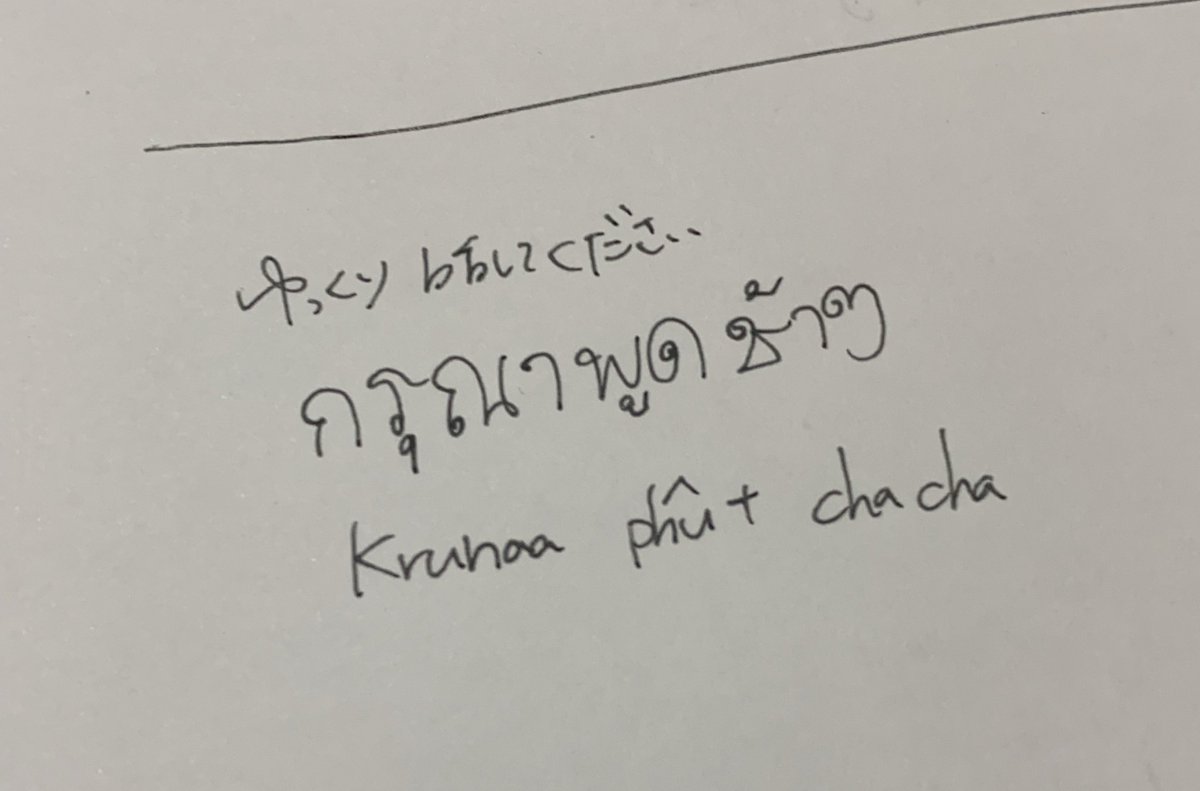 ゆっくり 話してください..
กรุณาพูด ช้าๆ
Krunaa phût cha cha